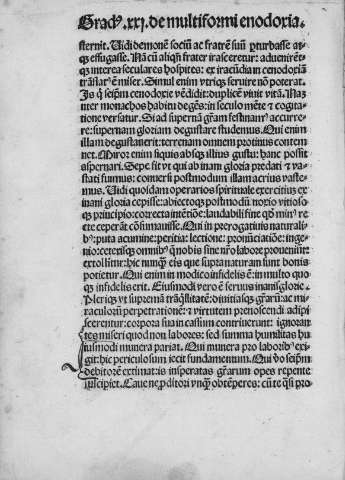 Gradꝰ.xxj. de multiformi enodoxia.
sternit. Uidi demonē sociū ac fratrē suū ꝑturbasse at
qꝫ effugasse. Nā cū aliqñ frater irasceretur: aduenirēt
qꝫ interea seculares hospites: ex iracūdia in cenodoxiā
trāslatꝰ ē miser. Simul em̄ vtriqꝫ seruire nō poterat.
Is q̇ seip̄m cenodoxie vēdidit: duplicē viuit vitā. Naꝫ
inter monachos habitu degēs: in seculo mēte ⁊ cogita
tione versatur. Si ad supernā gr̄am festinam⁹ accurre
re: supernam gloriam degustare studemus. Qui enim
illam degustauerit: terrenam omnem protinus contem
net. Miror enim siquis absqꝫ illius gustu: hanc possit
aspernari. Sepe fit vt qui ab inani gloria predati ⁊ va
stati fuimus: conuersi postmodum illam acrius vaste
mus. Uidi quosdam operarios spirituale exercitiuꝫ ex
inani gloria cepisse: abiectoqꝫ postmodum notio vitioso
qꝫ principio: correcta intētiōe: laudabili fine qḋ minꝰ re
cte ceperāt cōsummauisse. Qui in prerogatiuis naturali
bꝰ: puta acumine: peritia: lectione: pronūciatiōe: inge-
nio: ceterisqꝫ omnibꝰ q̄ nobis sine nr̄o labore prouenīunt
extollitur: hic nunqȝ eis que supra naturam sunt bonis
potietur. Qui enim in modico infidelis ē: in multo quo
qꝫ infidelis erit. Eiusmodi vero ē seruus inanis glorie.
Pleriqꝫ vt supremā trāq̇llitatē: diuitiasqꝫ gr̄arū: ac mi
raculorū perpetrationē: ⁊ virtutem prenoscendi adipi
scerentur: corpora sua in cassum contriuerunt: ignoran
tes miseri quod non labores: sed summa humilitas hu
iusmodi munera pariat. Qui munera pro laboribꝰ exi
git: hic periculosum iecit fundamentum. Qui ḋo seip̄m
debitorē estimat: is insperatas gr̄arum opes repente
suscipiet. Caue ne ꝓditori vnqȝ obtēperes: cū te q̇si pro